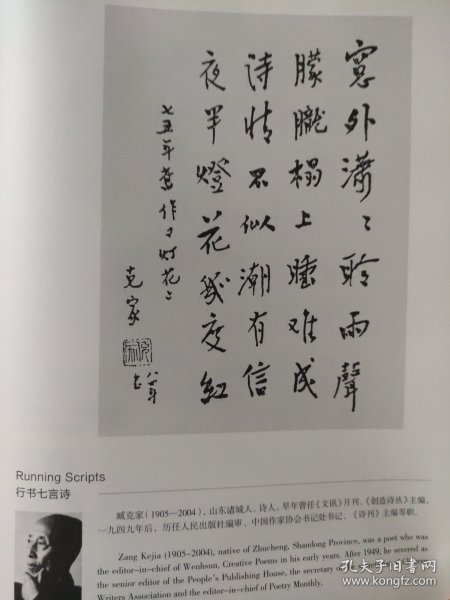 窗外潇〻聆雨聲
朦朧榻上睡难成
诗情不似潮有信
夜半燈花幾度紅
七五年舊作《灯花》
克家
Running Scripts
行书七言诗
臧克家（1905—2004），山东诸城人。诗人。早年曾任《文讯》月刊、《创造诗丛》主编。
一九四九年后，历任人民出版社编审、中国作家协会书记处书记、《诗刊》主编等职。
Zang Kejia (1905–2004), native of Zhucheng, Shandong Province, was a poet who was
the editor-in-chief of Wenhsun, Creative Poems in his early years. After 1949, he severed as
the senior editor of the People's Publishing House, the secretary
Writers Association and the editor-in-chief of Poetry Monthly.
孔夫子旧书网